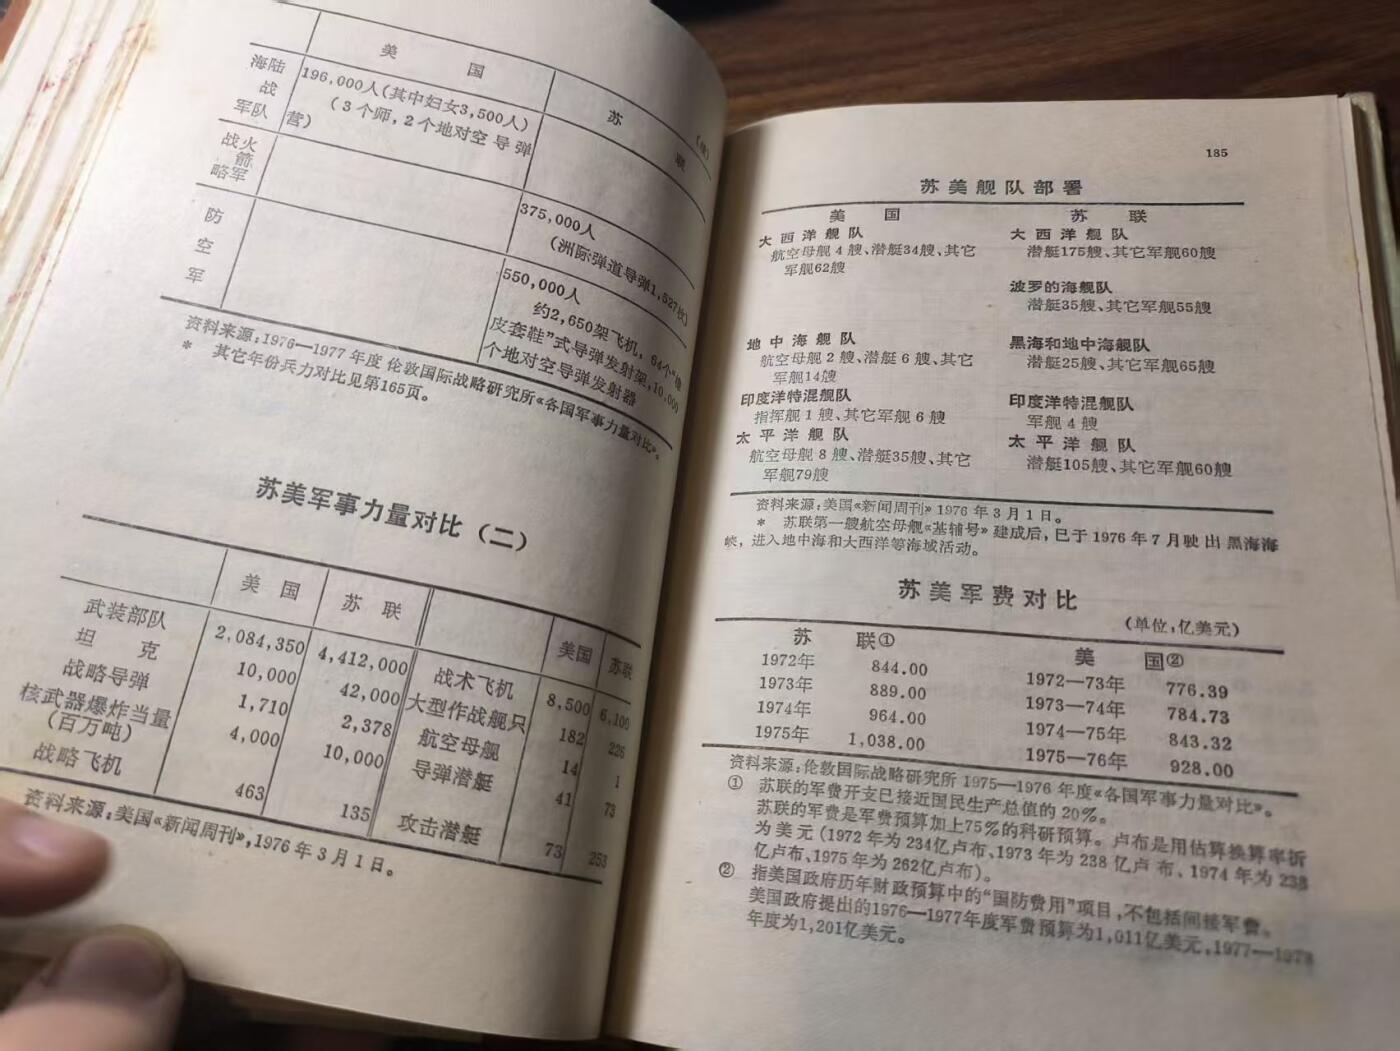 (续)
美 国
苏 联
海陆战军队
196,000人(其中妇女3,500人)
(3个师,2个地对空导弹
营)
战火箭略军
375,000人
(洲际弹道导弹1,527枚)
防空军
550,000人
约2,650架飞机,64个“橡
皮套鞋”式导弹发射架,10,000
个地对空导弹发射器
资料来源:1976—1977年度伦敦国际战略研究所《各国军事力量对比》。
* 其它年份兵力对比见第165页。
苏美军事力量对比(二)
美 国 苏 联 美国 苏联
武装部队 2,084,350 4,412,000 战术飞机 8,500 6,100
坦 克 10,000 42,000 大型作战舰只 182 226
战略导弹 1,710 2,378 航空母舰 14 1
核武器爆炸当量 4,000 10,000 导弹潜艇 41 73
(百万吨)
战略飞机 463 135 攻击潜艇 73 253
资料来源:美国《新闻周刊》,1976年3月1日。
185
苏美舰队部署
美 国 苏 联
大西洋舰队 大西洋舰队
航空母舰4艘、潜艇34艘、其它 潜艇175艘、其它军舰60艘
军舰62艘
波罗的海舰队
潜艇35艘、其它军舰55艘
地中海舰队 黑海和地中海舰队
航空母舰2艘、潜艇6艘、其它 潜艇25艘、其它军舰65艘
军舰14艘
印度洋特混舰队 印度洋特混舰队
指挥舰1艘、其它军舰6艘 军舰4艘
太平洋舰队 太平洋舰队
航空母舰8艘、潜艇35艘、其它 潜艇105艘、其它军舰60艘
军舰79艘
资料来源:美国《新闻周刊》1976年3月1日。
* 苏联第一艘航空母舰《基辅号》建成后,已于1976年7月驶出黑海海
峡,进入地中海和大西洋等海域活动。
苏美军费对比
(单位,亿美元)
苏 联① 美 国②
1972年 844.00 1972—73年 776.39
1973年 889.00 1973—74年 784.73
1974年 964.00 1974—75年 843.32
1975年 1,038.00 1975—76年 928.00
资料来源:伦敦国际战略研究所1975—1976年度《各国军事力量对比》。
① 苏联的军费开支已接近国民生产总值的20%。
苏联的军费是军费预算加上75%的科研预算。卢布是用估算换算率折
为美元(1972年为234亿卢布、1973年为238亿卢布、1974年为238
亿卢布、1975年为262亿卢布)。
② 指美国政府历年财政预算中的“国防费用”项目,不包括间接军费。
美国政府提出的1976—1977年度军费预算为1,011亿美元,1977—1978
年度为1,201亿美元。